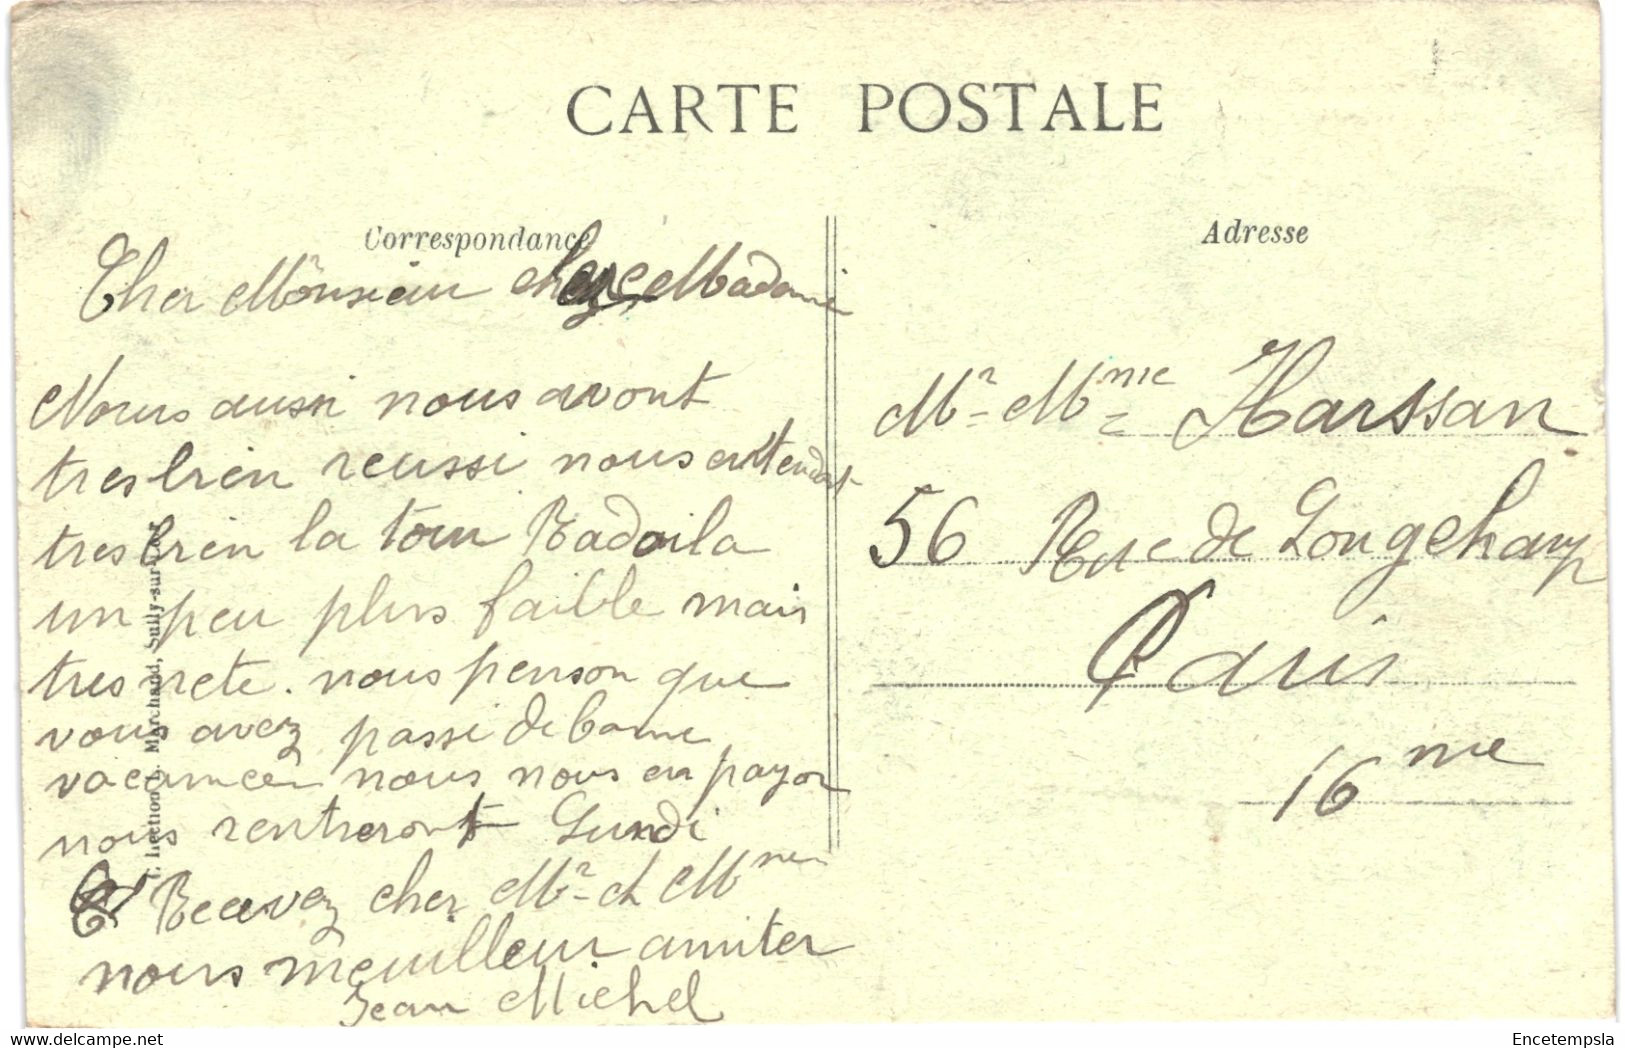 CARTE POSTALE
Correspondance
Cher Monsieur chere Madame
Nous aussi nous avont
tres bien reussi nous entendont
tres bien la tour Radoila
un peu plus faible mais
tres nete. nous penson que
vous avez passé de bonne
vacances nous nous en payon
nous rentreront Lundi
Recevez cher Mr et Mme
nous meuilleur amiter
Jean Michel
Collection L. Marchand, Sully-sur-Loire
Adresse
Mr Mme Harssan
56 Rue de Longchamp
Paris
16me
Encetempsla